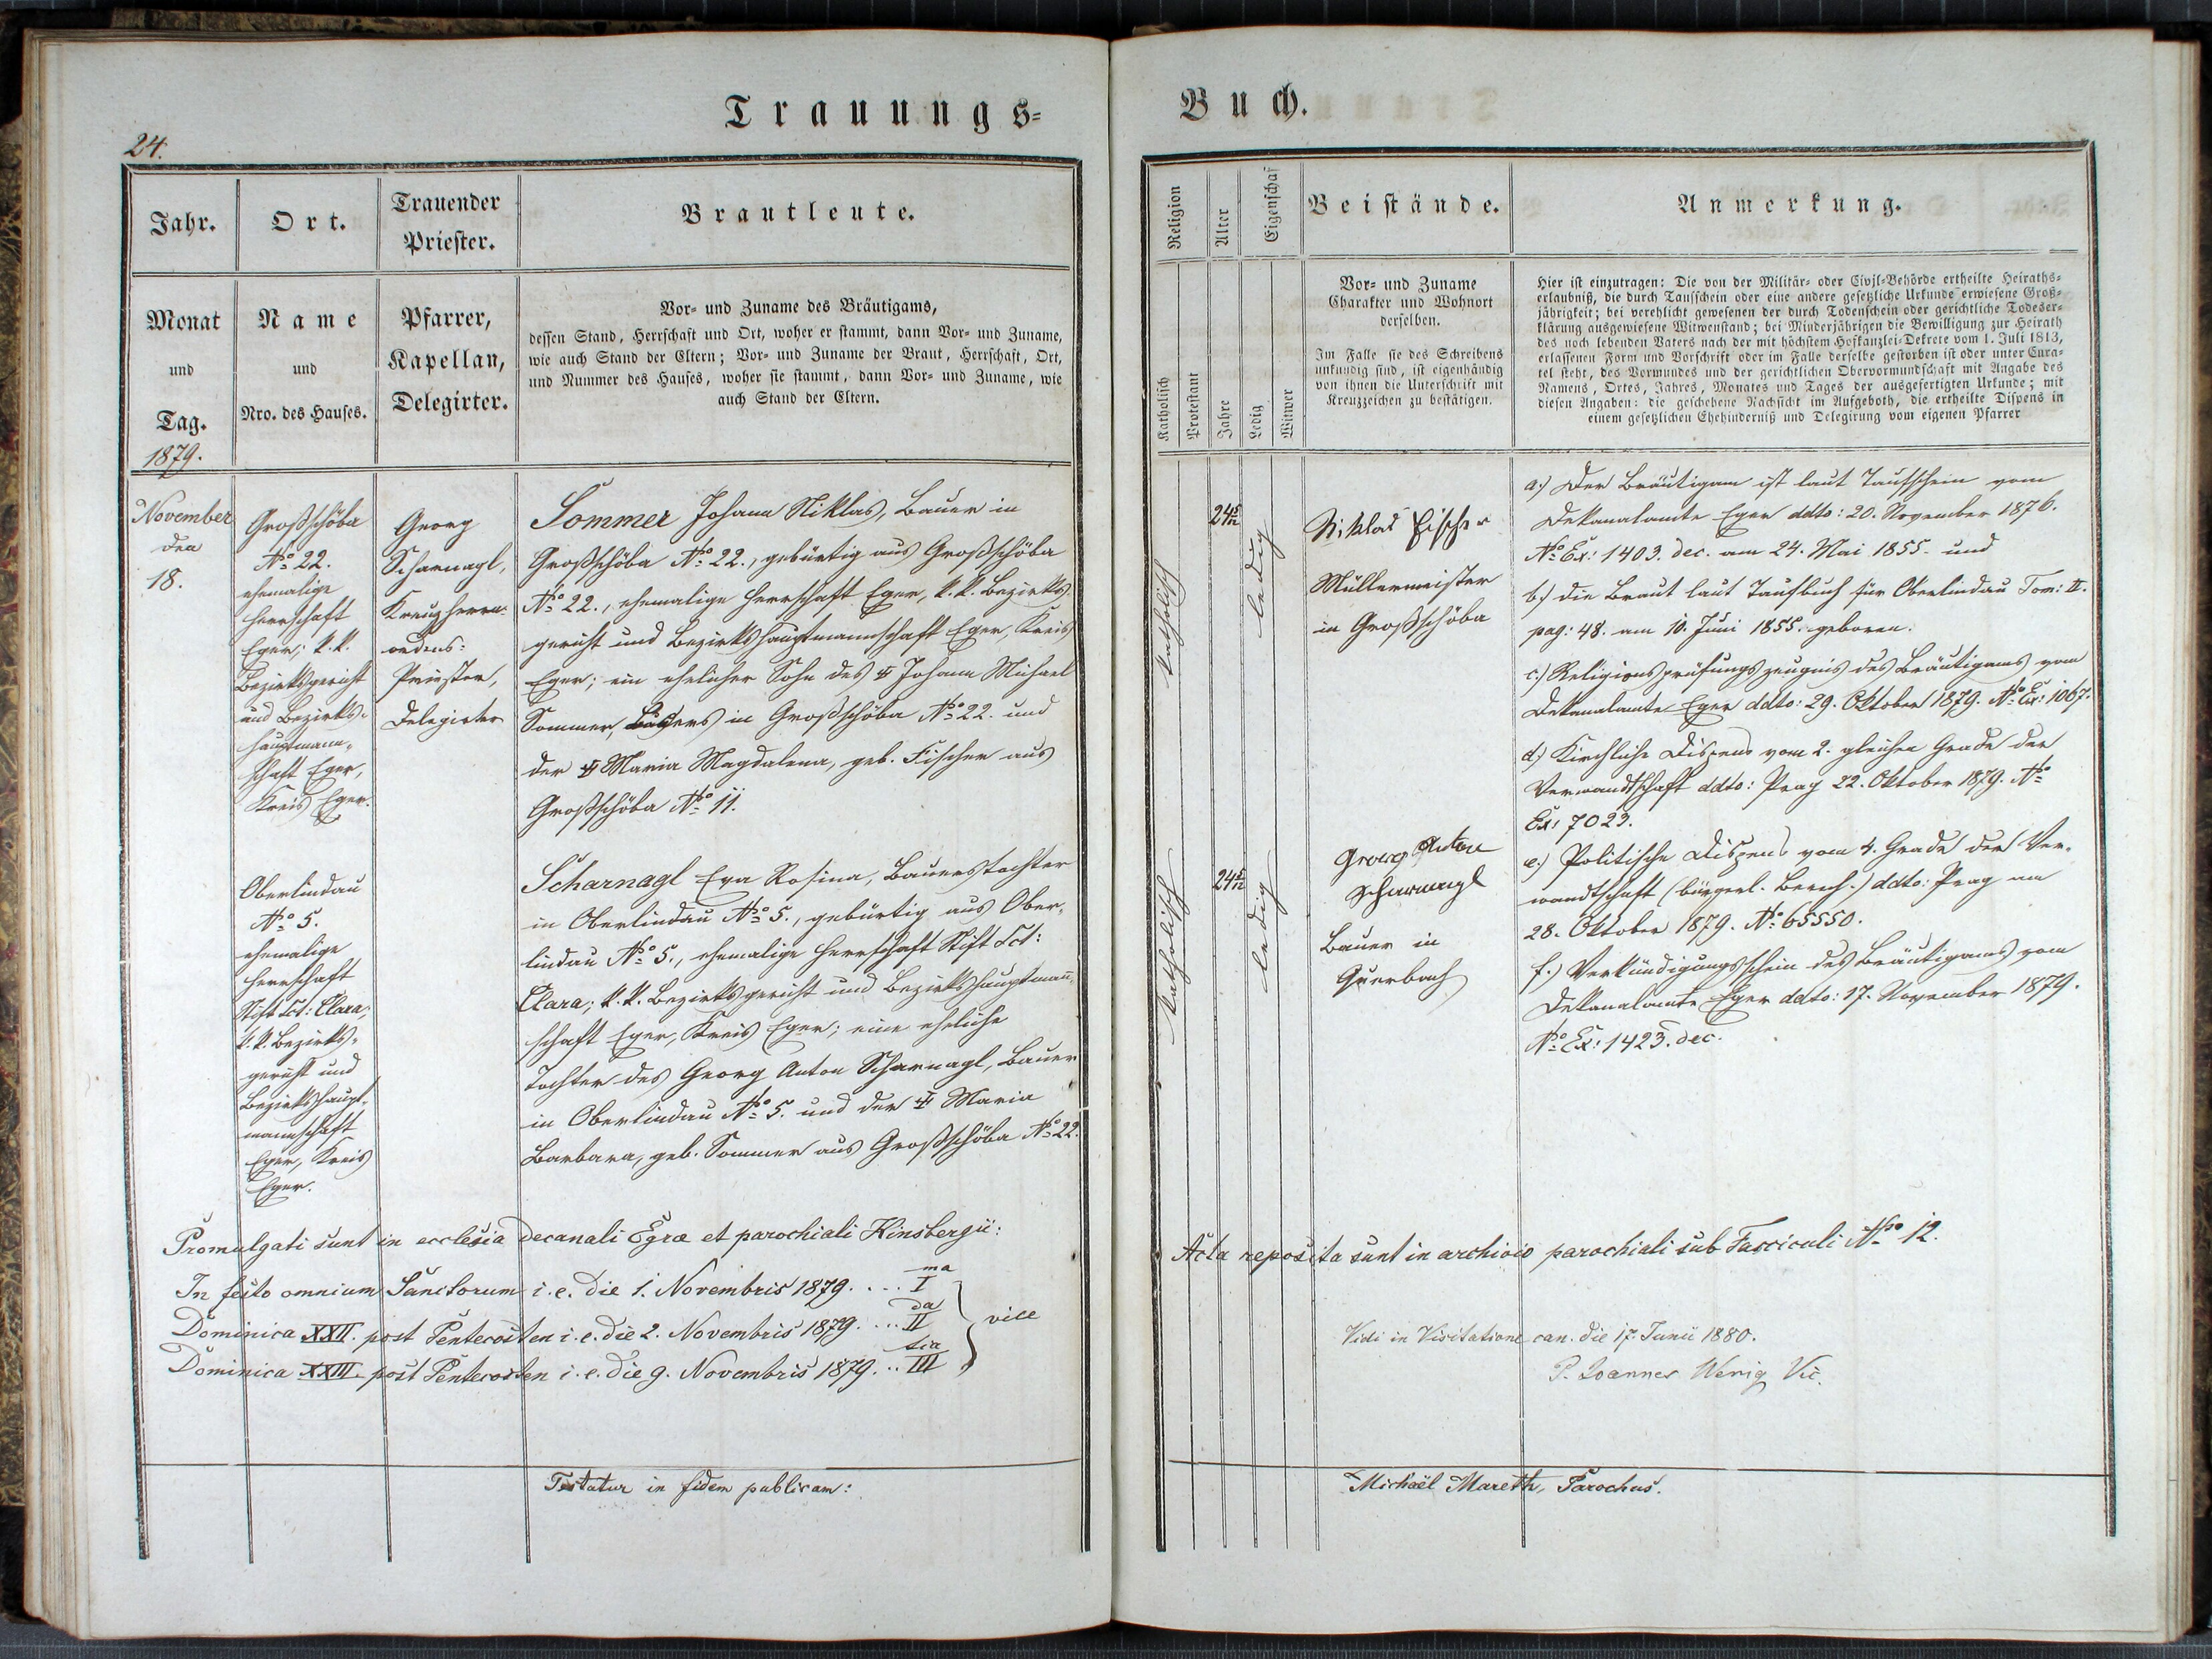 Trauungs-
24.
Jahr.
Ort.
Trauender
Priester.
Brautleute.
Monat
und
Tag.
1879.
Name
und
Nro. des Hauses.
Pfarrer,
Kapellan,
Delegirter.
Vor- und Zuname des Bräutigams,
dessen Stand, Herrschaft und Ort, woher er stammt, dann Vor- und Zuname,
wie auch Stand der Eltern; Vor- und Zuname der Braut, Herrschaft, Ort,
und Nummer des Hauses, woher sie stammt, dann Vor- und Zuname, wie
auch Stand der Eltern.
November
den
18.
Großschöba
No. 22.
ehemalige
Herrschaft
Eger; k. k.
Bezirksgericht
und Bezirks-
hauptmann-
schaft Eger,
Kreis Eger.
Georg
Scharnagl,
Kreuzherrn-
ordens-
Priester,
Delegirter
Sommer Johann Niklas, Bauer in
Großschöba No. 22., gebürtig aus Großschöba
No. 22., ehemalige Herrschaft Eger, k. k. Bezirks-
gericht und Bezirkshauptmannschaft Eger, Kreis
Eger; ein ehelicher Sohn des ‡ Johann Michael
Sommer, Bauers in Großschöba No. 22. und
der ‡ Maria Magdalena, geb. Fischer aus
Großschöba No. 11.
Oberlindau
No. 5.
ehemalige
Herrschaft
Stift Sct: Clara;
k. k. Bezirks-
gericht und
Bezirkshaupt-
mannschaft
Eger, Kreis
Eger.
Scharnagl Eva Rosina, Bauerstochter
in Oberlindau No. 5., gebürtig aus Ober-
lindau No. 5., ehemalige Herrschaft Stift Sct:
Clara; k. k. Bezirksgericht und Bezirkshauptmann-
schaft Eger, Kreis Eger; eine eheliche
Tochter des Georg Anton Scharnagl, Bauer
in Oberlindau No. 5. und der ‡ Maria
Barbara, geb. Sommer aus Großschöba No. 22.
Promulgati sunt in ecclesia decanali Egræ et parochiali Kinsbergii:
In festo omnium Sanctorum i. e. die 1. Novembris 1879. .... I ma
Dominica XXII. post Pentecosten i. e. die 2. Novembris 1879. ... II da
Dominica XXIII. post Pentecosten i. e. die 9. Novembris 1879. .. III tia
vice
Testatur in fidem publicam:
Buch.
Religion
Alter
Eigenschaf
Beistände.
Anmerkung.
Katholisch
Protestant
Jahre
Ledig
Witwer
Vor- und Zuname
Charakter und Wohnort
derselben.
Im Falle sie des Schreibens
unkundig sind, ist eigenhändig
von ihnen die Unterschrift mit
Kreuzzeichen zu bestätigen.
Hier ist einzutragen: Die von der Militär- oder Civil-Behörde ertheilte Heiraths-
erlaubniß, die durch Taufschein oder eine andere gesetzliche Urkunde erwiesene Groß-
jährigkeit; bei verehlicht gewesenen der durch Todenschein oder gerichtliche Todeser-
klärung ausgewiesene Witwenstand; bei Minderjährigen die Bewilligung zur Heirath
des noch lebenden Vaters nach der mit höchstem Hofkanzlei-Dekrete vom 1. Juli 1813,
erlassenen Form und Vorschrift oder im Falle derselbe gestorben ist oder unter Cura-
tel steht, des Vormundes und der gerichtlichen Obervormundschaft mit Angabe des
Namens, Ortes, Jahres, Monates und Tages der ausgefertigten Urkunde; mit
diesen Angaben: die geschehene Nachsicht im Aufgeboth, die ertheilte Dispens in
einem gesetzlichen Ehehinderniß und Delegirung vom eigenen Pfarrer
katholisch
24 5/12
ledig
Niklas Fischer
Müllermeister
in Großschöba
katholisch
24 5/12
ledig
Georg Anton
Scharnagl
Bauer in
Querbach
a.) Der Bräutigam ist laut Taufschein vom
Dekanalamte Eger ddto: 20. November 1876.
No. Ex: 1403. dec. am 24. Mai 1855. und
b.) die Braut laut Taufbuch für Oberlindau Tom: II.
pag: 48. am 10. Juni 1855. geboren.
c.) Religionsprüfungszeugnis des Bräutigams vom
Dekanalamte Eger ddto: 29. Oktober 1879. No. Ex: 1067.
d.) Kirchliche Dispens vom 2. gleichen Grade der
Verwandtschaft ddto: Prag 22. Oktober 1879. No.
Ex: 7023.
e.) Politische Dispens vom 4. Grade der Ver-
wandtschaft (bürgerl. Berech.) ddto: Prag am
28. Oktober 1879. No. 65550.
f.) Verkündigungsschein des Bräutigams vom
Dekanalamte Eger ddto: 17. November 1879.
No. Ex: 1423. dec.
Acta reposita sunt in archivio parochiali sub Fasciculi No. 12.
Vidi in Visitatione can. die 17. Junii 1880.
P. Joannes Wenig Vic.
Michaël Mareth, Parochus.